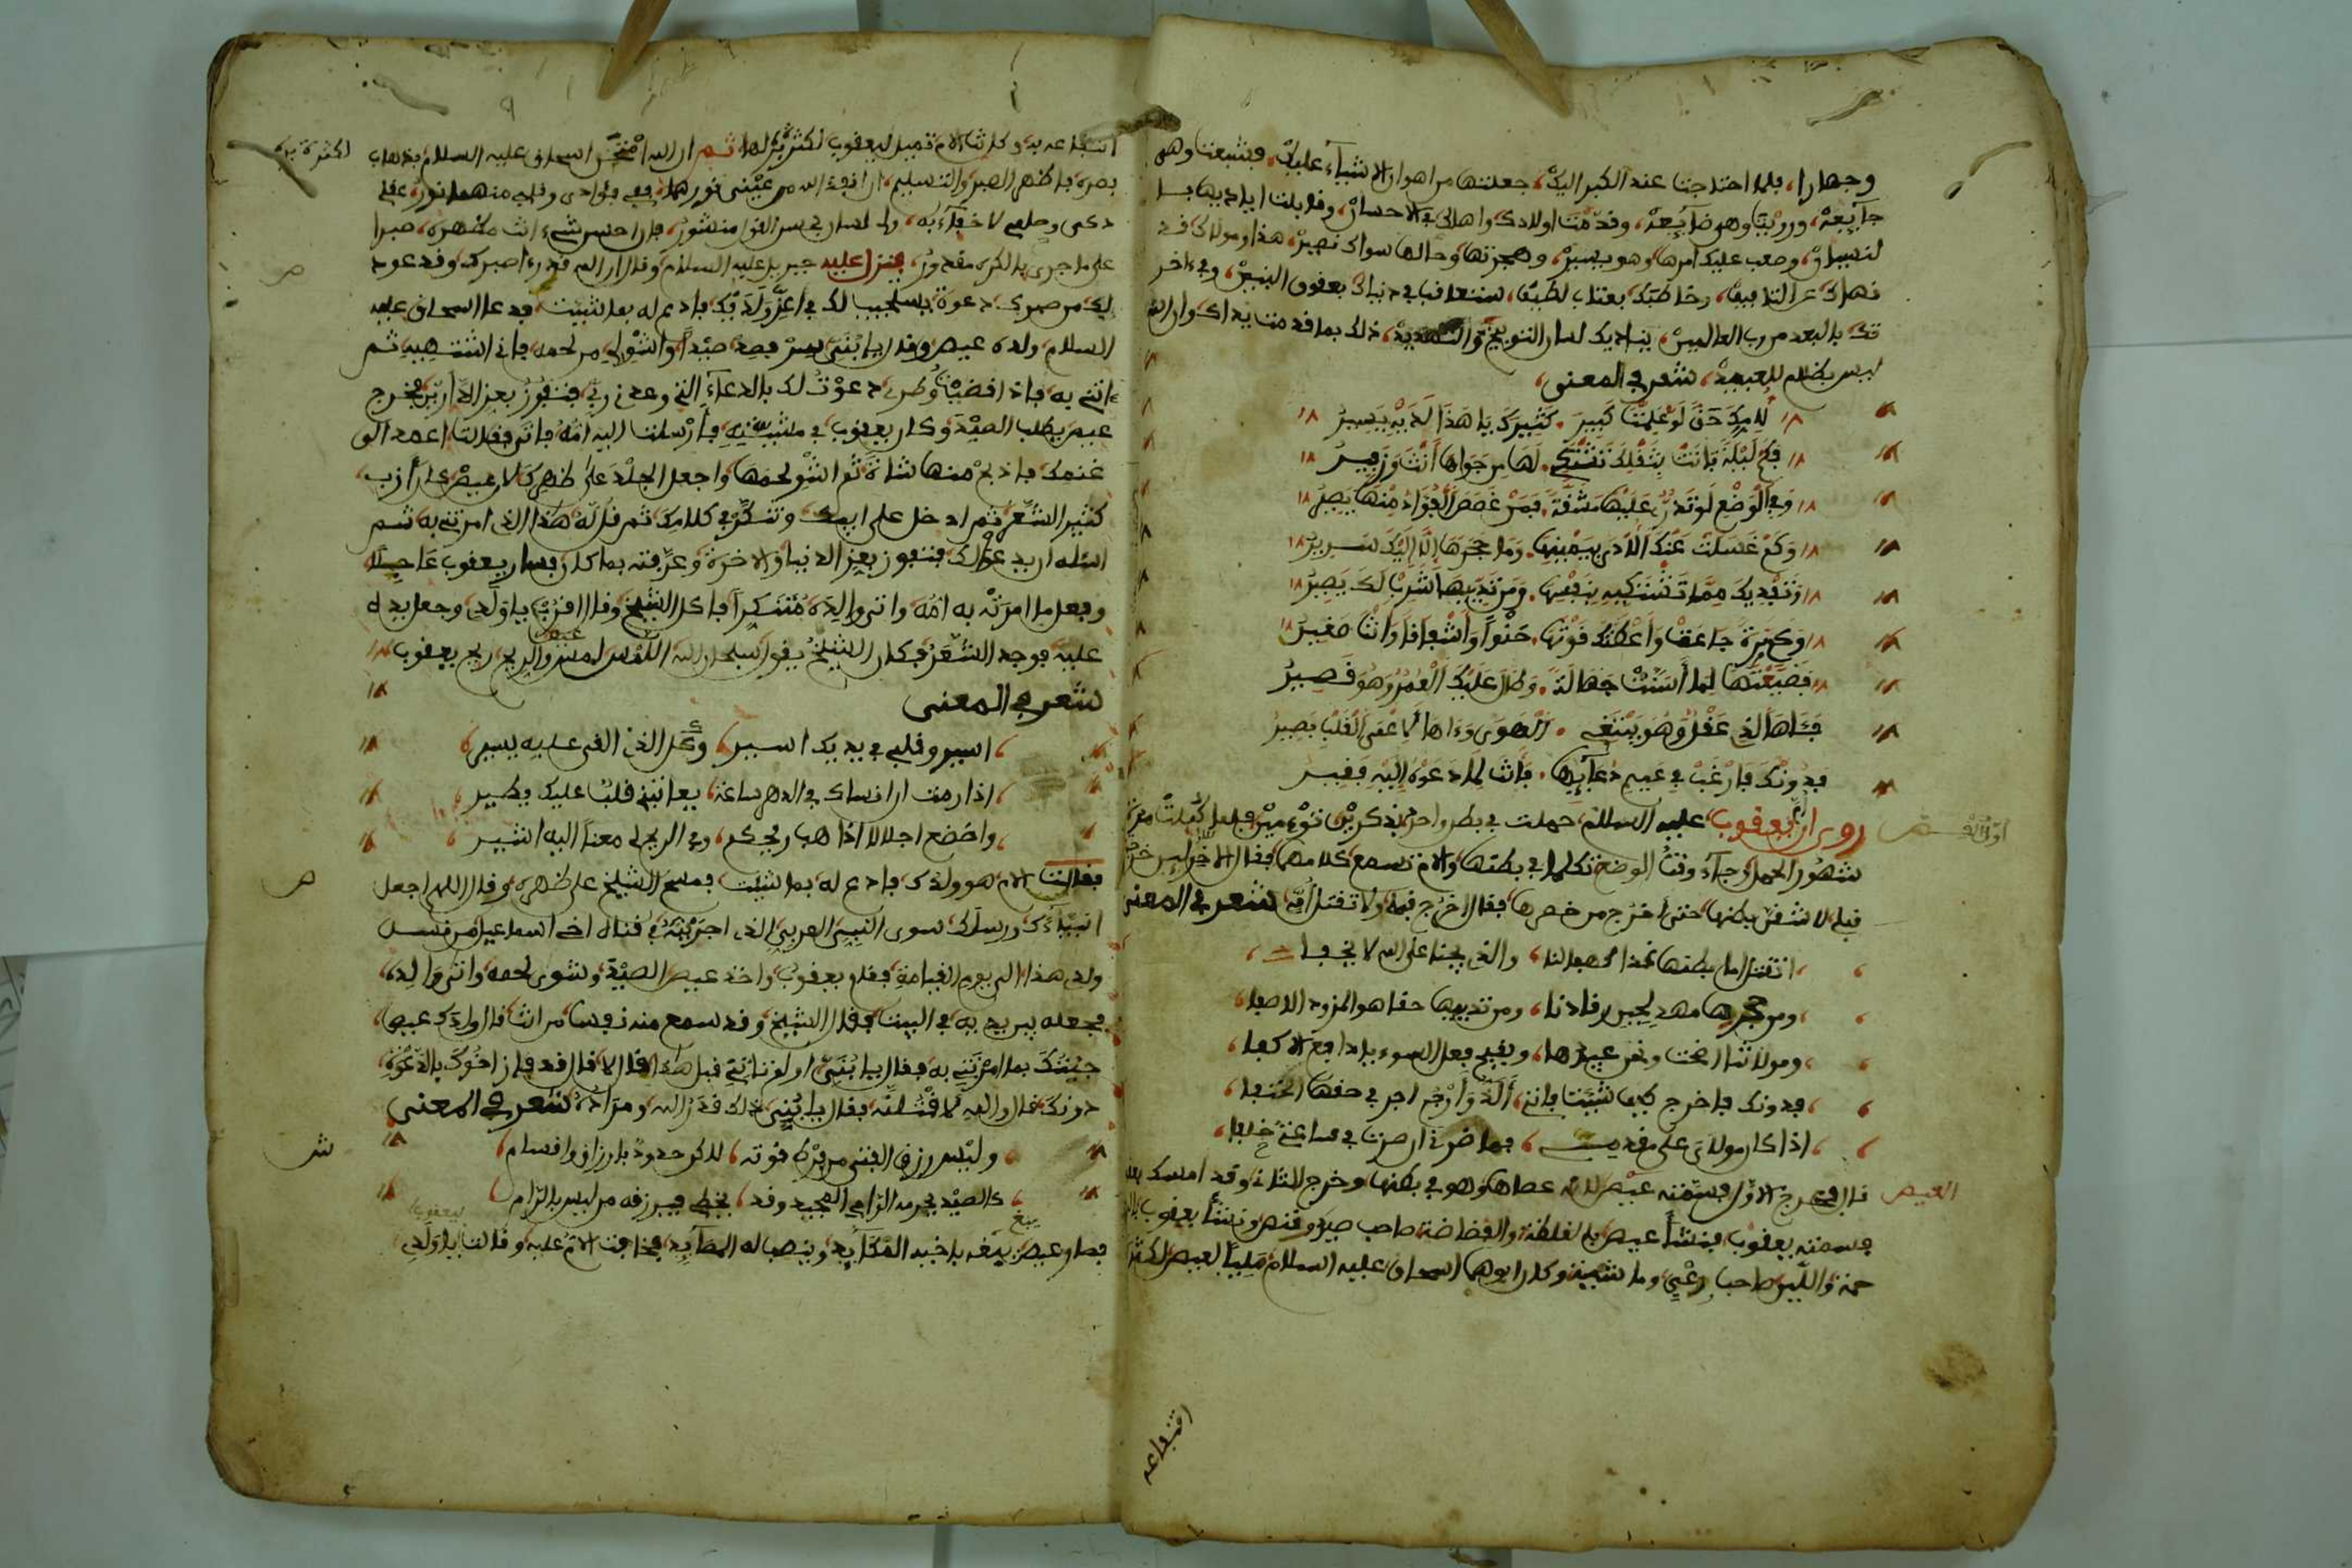 وجهارا، فلما احتاجت عند الكبر اليك، جعلتها من اهون الاشياء عليك، فشبعت وهي
جآيعة، ورويت وهي ضآيعة، وقدمت اولادك واهلك في الاحسان، وقابلت اياديها بـ
لنسيان، وصعب عليك امرها وهو يسير، وهجرتها وما لها سواك نصير، هذا ومولاك قد
نهاك عن التافيف، وخاطبك بعتاب لطيف، ستعاقب في دنياك بعقوق البنين، وفي اخر
تك بالبعد من رب العالمين، يناديك لسان التوبيخ والتهديد، ذلك بما قدمت يداك وان الله
ليس بظلام للعبيد، شعر في المعنى
لامك حق لو علمت كبير . كثيرك يا هذا لديه يسير
فكم ليلة باتت بثقلك تشتكي . لها من جواها انة وزفير
وفي الوضع لو تدري عليها مشقة . فمن غصص الفؤاد منها يصير
وكم غسلت عنك الاذى بيمينها . وما حجرها الا اليك سرير
وتفديك مما تشتكيه بنفسها . ومن ثديها شرب لك يصير
وكم مرة جاعت واعطتك قوتها . حنوا واشفاقا وانت صغير
فضيعتها لما اسنت جهالة . وطال عليك العمر وهو قصير
فآها لذي عقل وهو يتبع الهوى . وواها لاعمى القلب بصير
فدونك فارغب في عميم دعآيها . فانت لما تدعو اليه فقير
روى ان يعقوب عليه السلام حملت في بطن واحد بذكرين توءمين فلما كملت مدة
شهور الحمل وجآء وقت الوضع تكلما في بطنها والام تسمع كلامهما فقال الاخر لين خرجت
قبلي لاشقن بطنها حتى اخرج من خصرها فقال اخرج قبلي ولا تقتل امي شعر في المعنى
اتقتل اما بطنها غدا محملا لنا، والذي يجنا على الله لا يخفا
ومن حجرها مهد لحين رقادنا، ومن ثدييها حقا هو المزود الاصفا
ومولاتنا اضحت ونحن عبيدها، ويقبح فعل السوء يا دافع الاكفا
فدونك فاخرج كيف شئت فانني، الذ وارجو اجر في حقها الحتفا
اذا كان مولاي على مقدمي، فما ضرني ان صرت في ساعتي خلفا
قال فخرج الاول فسمته عيص لانه عصاها وهو في بطنها وخرج الثاني وقد امسك بعقبه
فسمته يعقوب فنشأ عيص بالغلظة والفظاظة صاحب صيد وقنص ونشأ يعقوب بالر
حمة واللين صاحب رعي وماشية وكان ابوهما اسحاق عليه السلام مليا لعيص لكثرة
اول القصص
العيص
انتفاعه
انتفاعه به وكانت الام تميل ليعقوب لكثرة بره لها ثم ان الله امتحن اسحاق عليه السلام بذهاب
بصره فاظهر الصبر والتسليم، ان اخذ الله من عيني نورهما، ففي فؤادي وقلبي منهما نور، عقلي
ذكي وحلمي لا خفآء به، ولي لسان بحسن القول منشور، فان احسن شيء انت مظهره، صبرا
على ما جرى بالكره مقدور، فنزل عليه جبريل عليه السلام وقال ان الله قدرء اصبرك وقد عود
ليك من صبرك دعوة يستجيب لك في اعز ولديك فادع له بما شيت فدعا اسحاق عليه
السلام ولده عيص وقال يا بني سر فصد صيدا واشو لي من لحمه فاني اشتهيه ثم
اتني به فاذا قضيت وطري دعوت لك بالدعآء الذي وعدني ربي فتفوز بعز الدارين فخرج
عيص يطلب الصيد وكان يعقوب في ماشيته فأرسلت اليه امه فاتى فقالت اعمد الى
غنمك فاذبح منها شاة ثم اشو لحمها واجعل الجلد على ظهرك لان عيص كان أزب
كثير الشعر ثم ادخل على ابيك وتنكر في كلامك ثم قل له هذا الذي امرتني به ثم
اسئله ان يدعو لك فتفوز بعز الدنيا والاخرة وعرفته بما كان فسار يعقوب عاجلا
وفعل ما امرته به امه واتى والده متنكرا فاكل الشيخ وقال اقرب يا ولدي وجعل يده
عليه فوجد الشعر فكان الشيخ يقول سبحان الله اللمس لمس عيص والريح ريح يعقوب
شعر في المعنى
اسير وقلبي في يديك اسير، وكل الذي القى عليه يسير
اذا رمت ان انساك في الدهر ساعة، يعاتبني قلب عليك يطير
واخضع اجلالا اذا هب ريحكم، وفي الريح لي معنا اليه اشير
فقالت الام هو ولدك فادع له بما شيت فمسح الشيخ على ظهره وقال اللهم اجعل
انبيآءك ورسلك سوى النبي العربي الذي اجريته في قناة اخي اسماعيل من نسل
ولدي هذا الى يوم القيامة فقام يعقوب واخذ عيص الصيد وشوى لحمه واتى والده
فجعله بين يديه في البيت فقال الشيخ وقد سمع منه نفسا من انت قال ولدك عيص
جيتك بما امرتني به فقال يا بني اولم تاتني قبل هذا قال لا قال قد فاز اخوك بالدعوة
دونك قال والله لاقتلنه فقال يا بني ذلك قدر الله ومراده شعر في المعنى
وليس رزق الفتى من فرط قوته، لكن حدود بارزاق واقسام
كالصيد يحرمه الرامي المجيد وقد، يخطي فيرزقه من ليس بالرام
فصار عيص يبغي باخيه المكآيد وينصب له المصآيد فخافت الام عليه وقالت يا ولدي
لكثرة بره